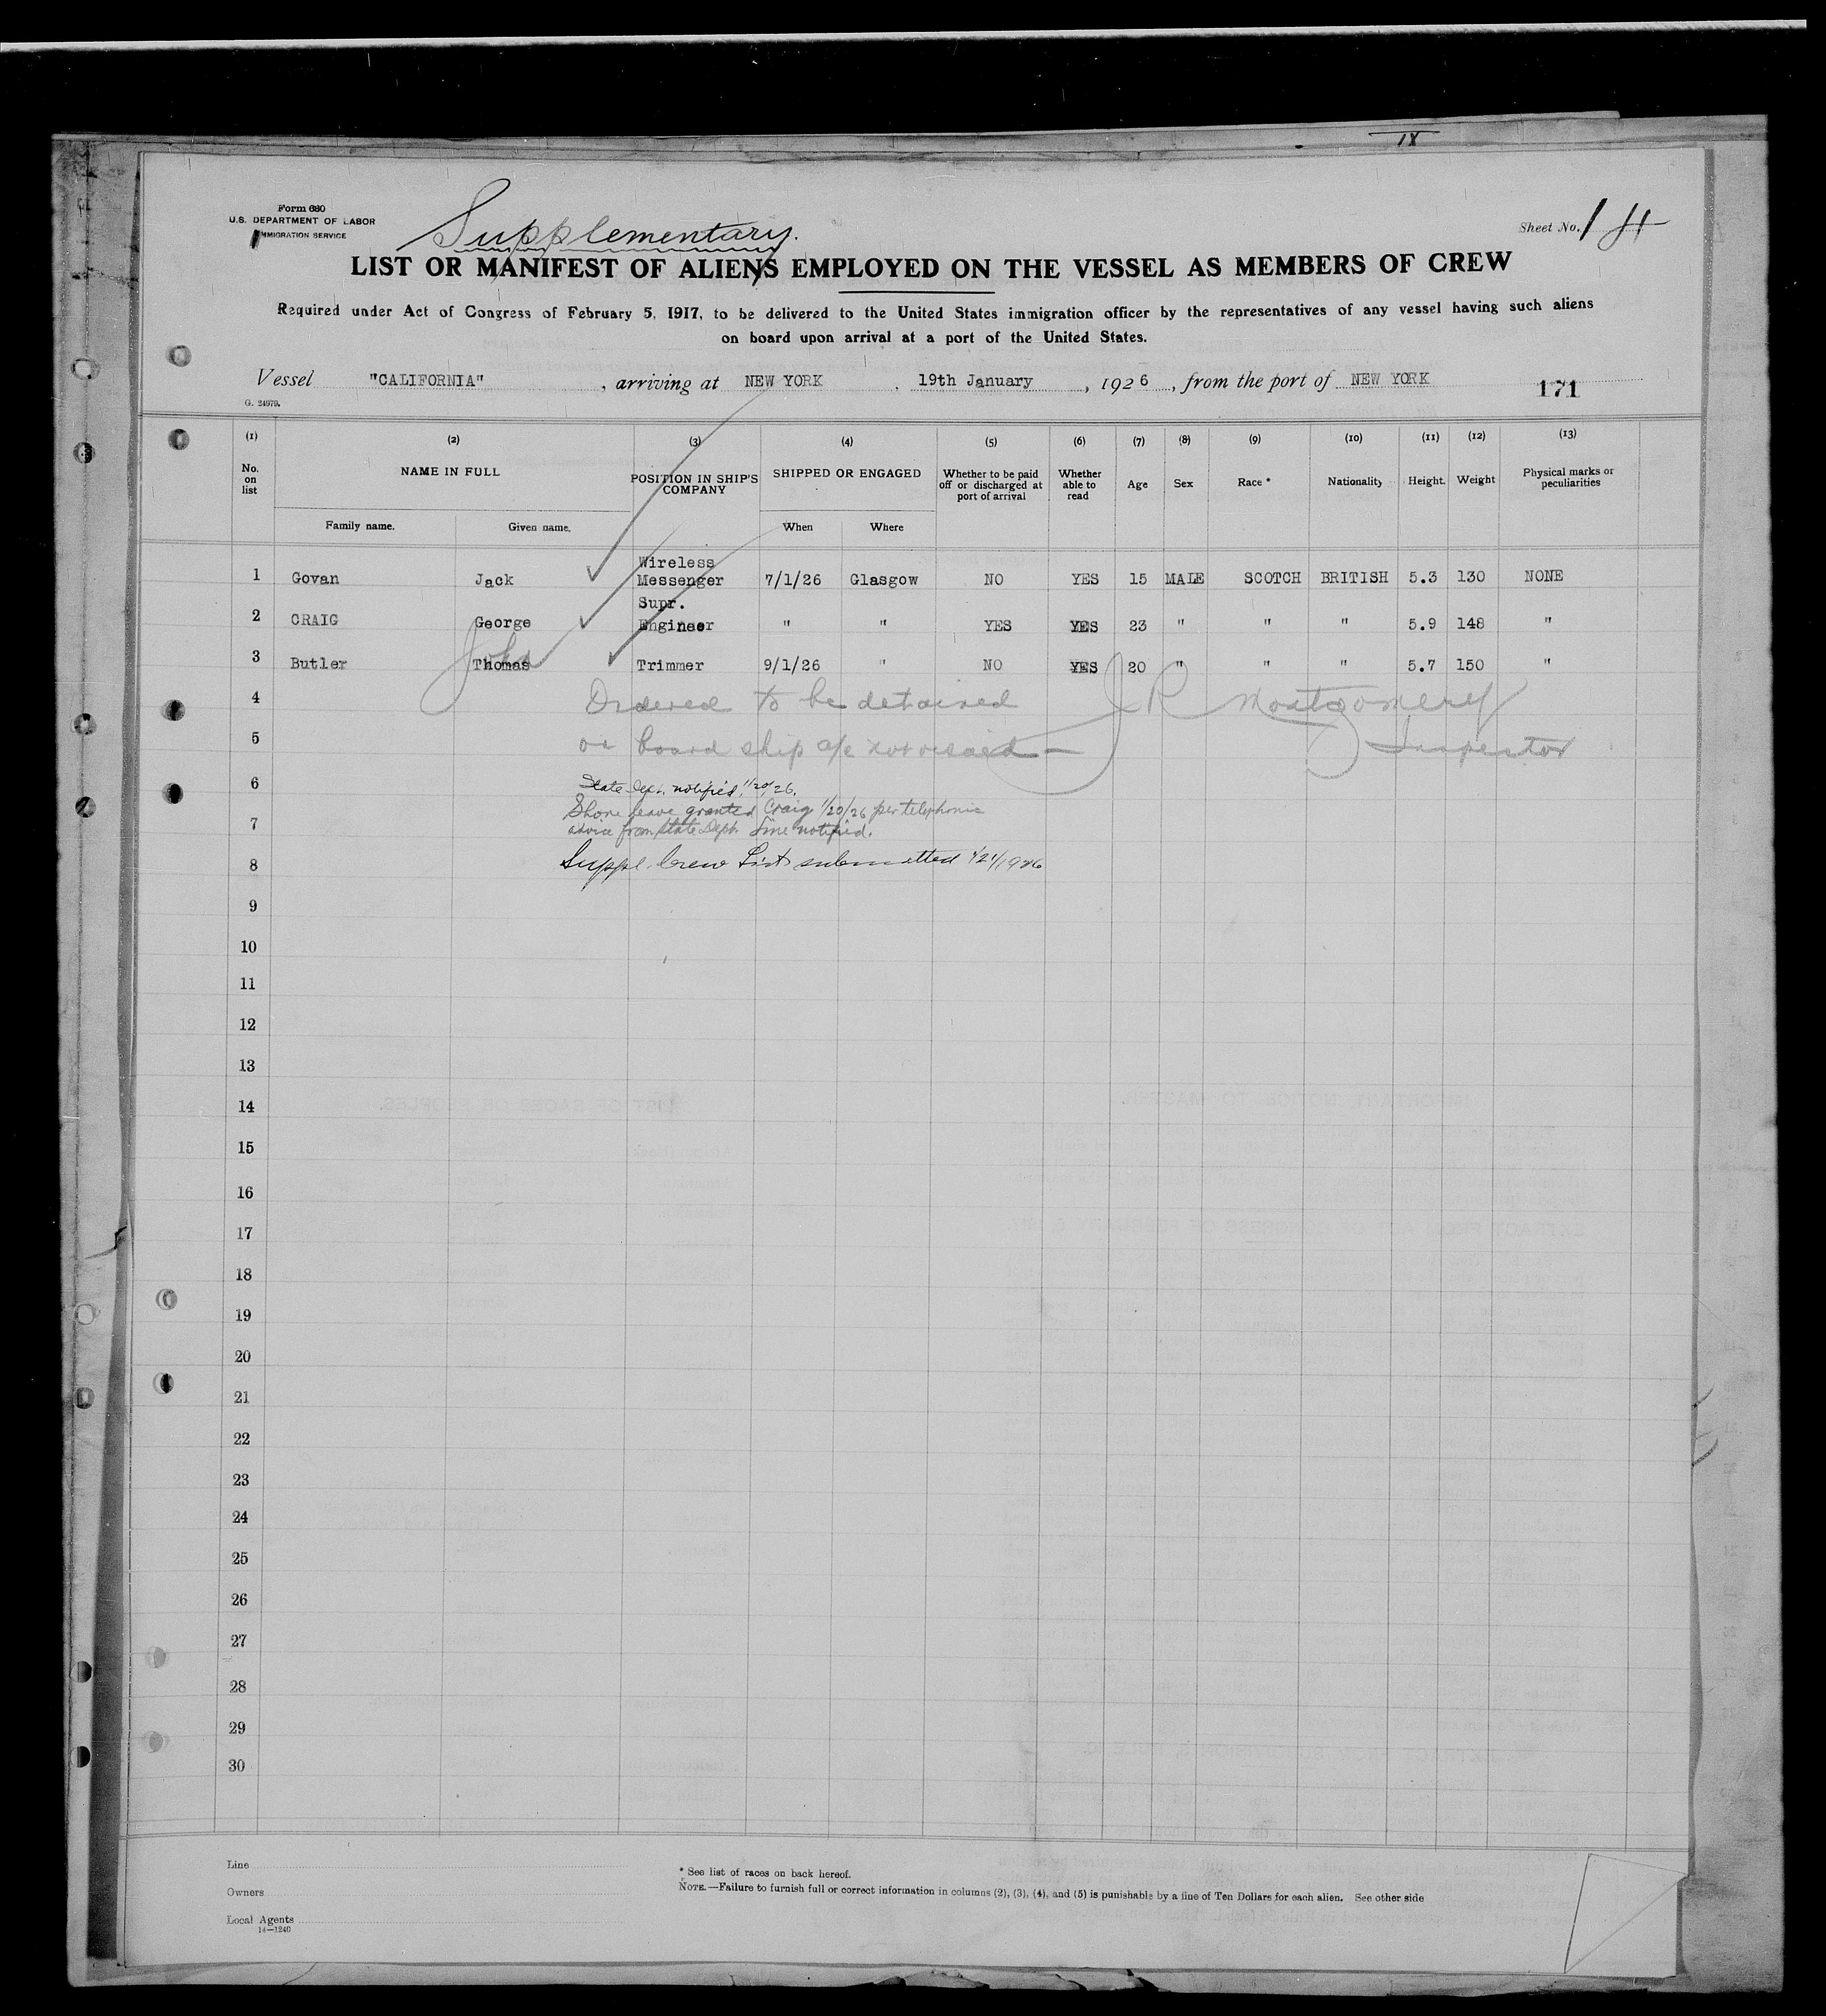 18
Form 680
U.S. DEPARTMENT OF LABOR
IMMIGRATION SERVICE
Supplementary.
Sheet No. 1
LIST OR MANIFEST OF ALIENS EMPLOYED ON THE VESSEL AS MEMBERS OF CREW
Required under Act of Congress of February 5, 1917, to be delivered to the United States immigration officer by the representatives of any vessel having such aliens
on board upon arrival at a port of the United States.
Vessel "CALIFORNIA", arriving at NEW YORK, 19th January, 1926, from the port of NEW YORK
171
G. 24979.
(1) (2) (3) (4) (5) (6) (7) (8) (9) (10) (11) (12) (13)
No. on list NAME IN FULL POSITION IN SHIP'S COMPANY SHIPPED OR ENGAGED Whether to be paid off or discharged at port of arrival Whether able to read Age Sex Race * Nationality Height. Weight Physical marks or peculiarities
Family name. Given name. When Where
1 Govan Jack Wireless Messenger 7/1/26 Glasgow NO YES 15 MALE SCOTCH BRITISH 5.3 130 NONE
2 CRAIG George Supr. Engineer " " YES YES 23 " " " 5.9 148 "
3 Butler Thomas John Trimmer 9/1/26 " NO YES 20 " " " 5.7 150 "
4 Ordered to be detained J R Montgomery
5 on board ship a/c not visaed — Inspector
6 State Dept. notified 1/20/26.
7 Shore leave granted Craig 1/20/26 per telephonic
advice from State Dept. Line notified.
8 Suppl. Crew List submitted 1/21/1926
9
10
11
12
13
14
15
16
17
18
19
20
21
22
23
24
25
26
27
28
29
30
Line
Owners
Local Agents
14—1240
* See list of races on back hereof.
NOTE.—Failure to furnish full or correct information in columns (2), (3), (4), and (5) is punishable by a fine of Ten Dollars for each alien. See other side